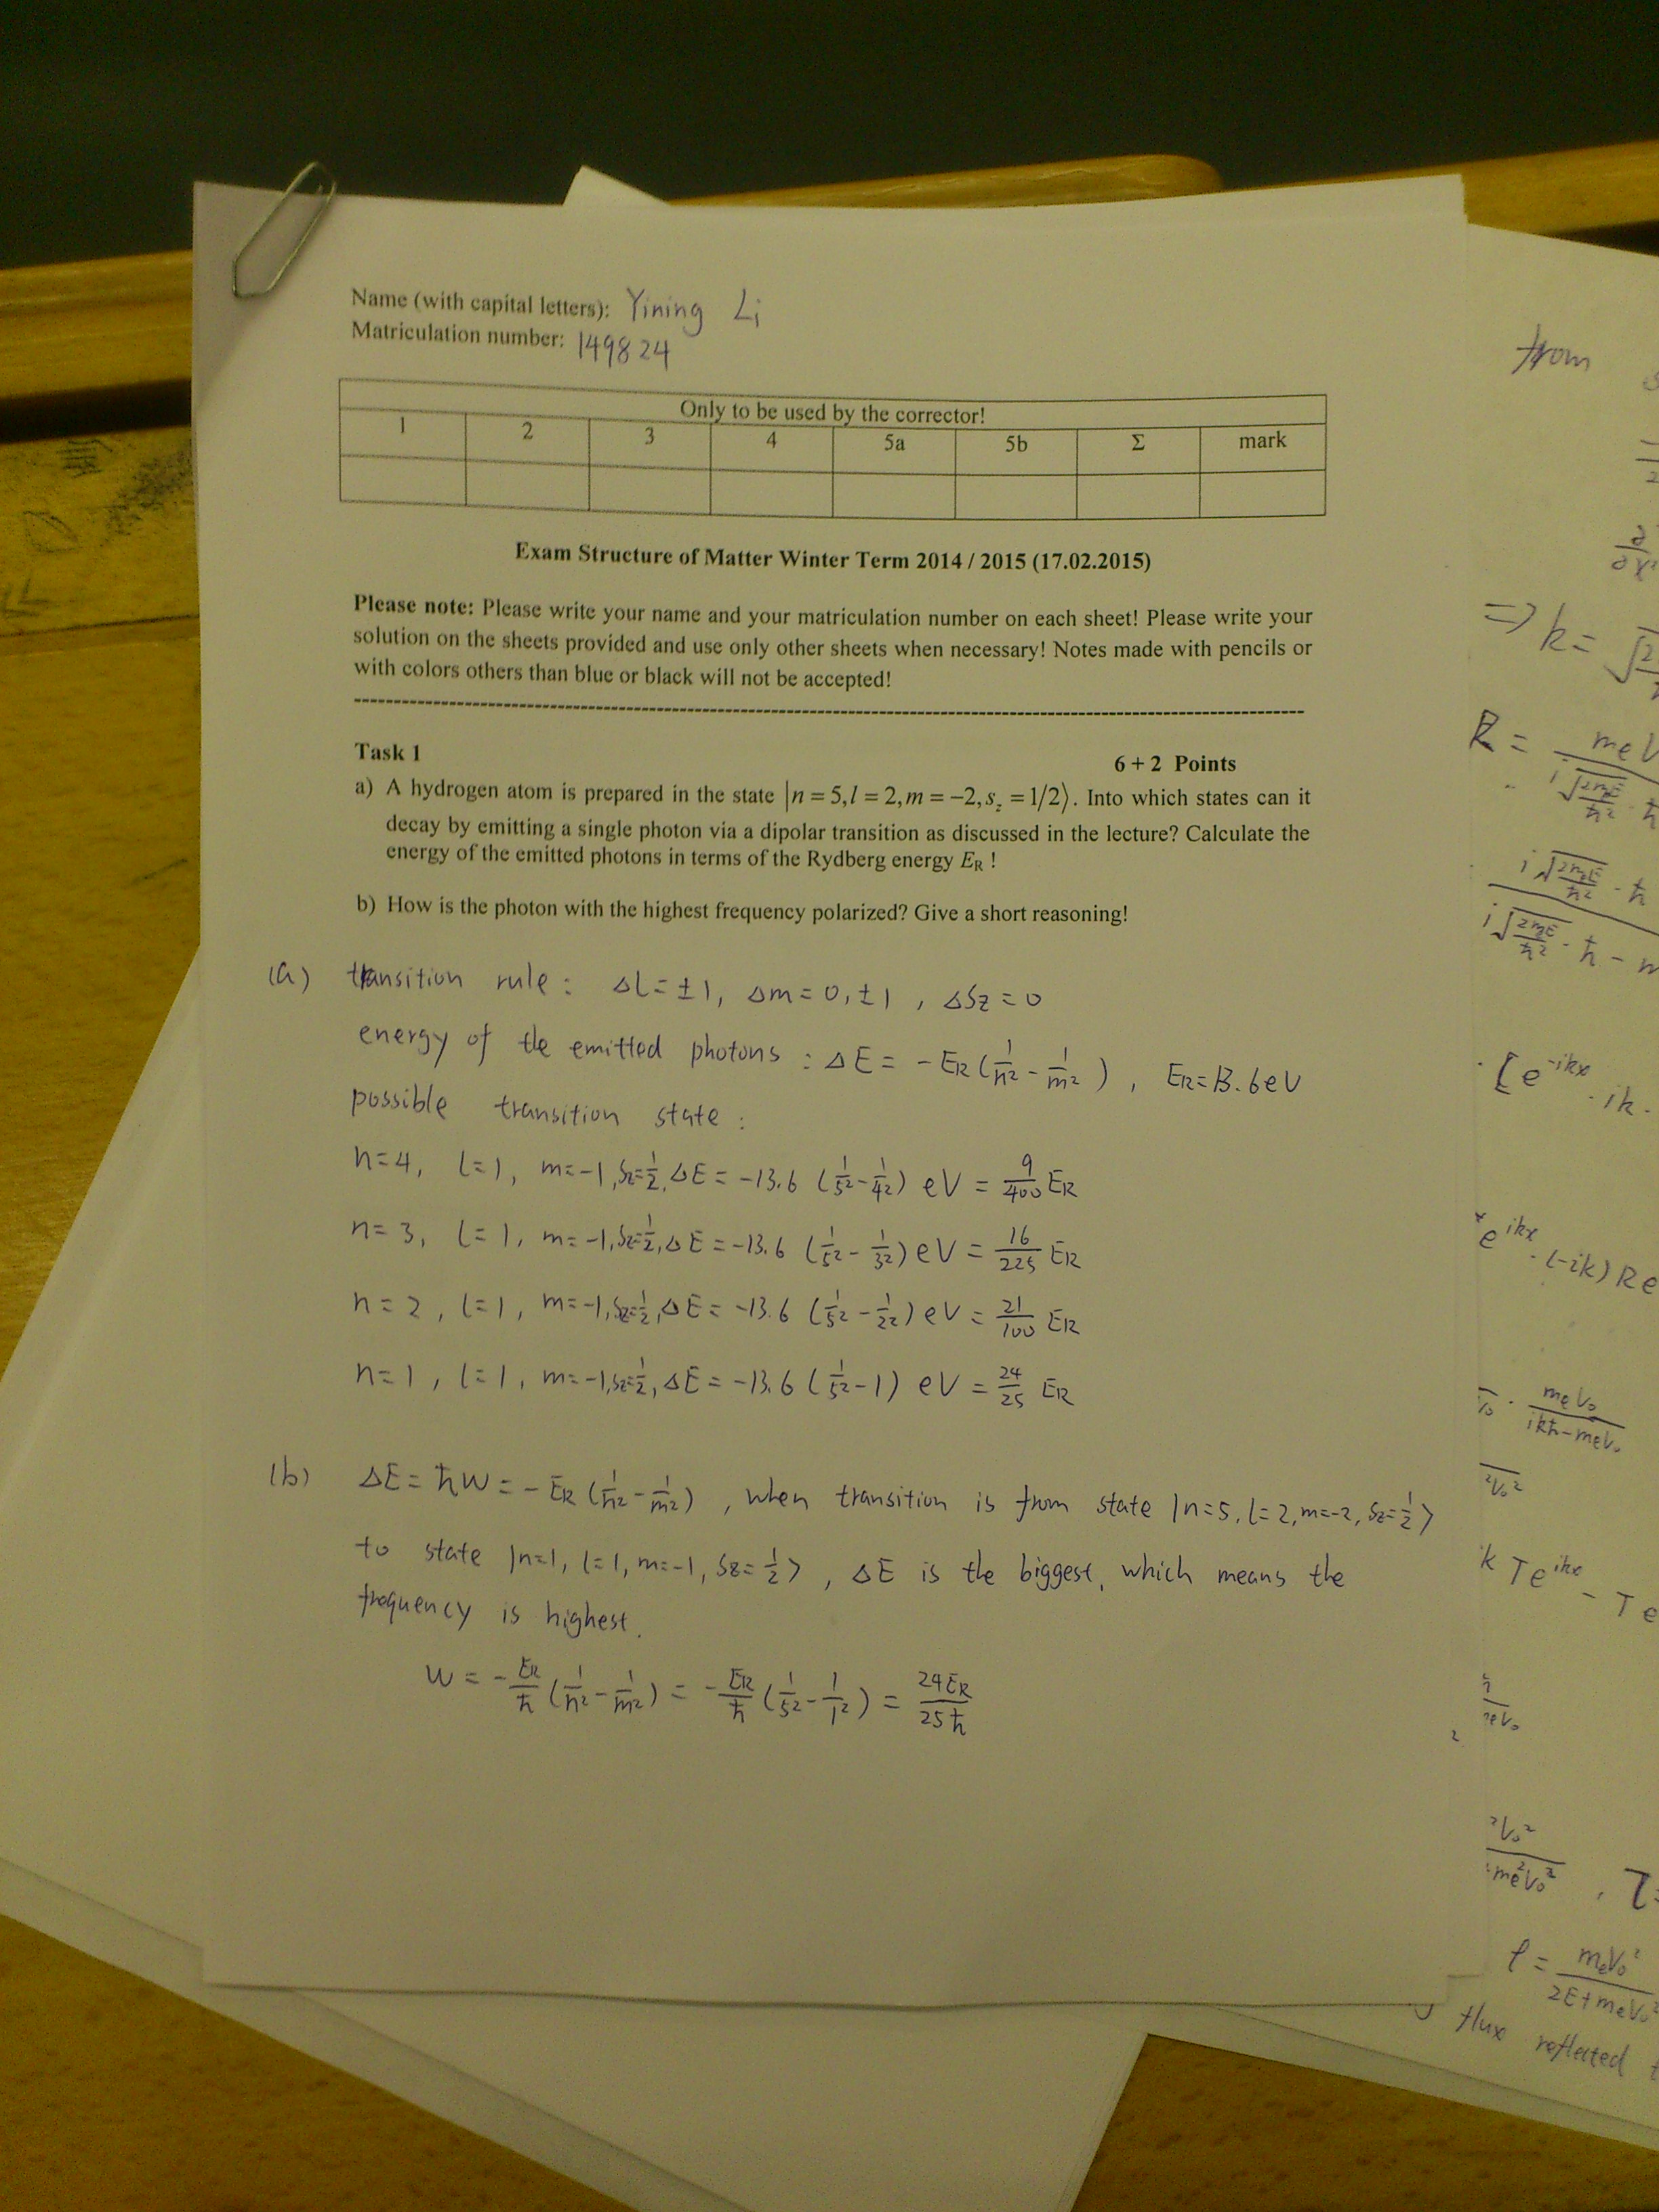 Name (with capital letters): Yining Li
Matriculation number: 149824
Only to be used by the corrector!
1 2 3 4 5a 5b Σ mark
Exam Structure of Matter Winter Term 2014 / 2015 (17.02.2015)
Please note: Please write your name and your matriculation number on each sheet! Please write your
solution on the sheets provided and use only other sheets when necessary! Notes made with pencils or
with colors others than blue or black will not be accepted!
Task 1 6 + 2 Points
a) A hydrogen atom is prepared in the state |n = 5, l = 2, m = −2, s_z = 1/2⟩. Into which states can it
decay by emitting a single photon via a dipolar transition as discussed in the lecture? Calculate the
energy of the emitted photons in terms of the Rydberg energy E_R !
b) How is the photon with the highest frequency polarized? Give a short reasoning!
(a) transition rule : Δl = ±1, Δm = 0, ±1 , ΔSz = 0
energy of the emitted photons : ΔE = -E_R (1/n² - 1/m²) , E_R = 13.6 eV
possible transition state :
n=4, l=1, m=-1, Sz=1/2, ΔE = -13.6 (1/5² - 1/4²) eV = 9/400 E_R
n=3, l=1, m=-1, Sz=1/2, ΔE = -13.6 (1/5² - 1/3²) eV = 16/225 E_R
n=2, l=1, m=-1, Sz=1/2, ΔE = -13.6 (1/5² - 1/2²) eV = 21/100 E_R
n=1, l=1, m=-1, Sz=1/2, ΔE = -13.6 (1/5² - 1) eV = 24/25 E_R
(b) ΔE = ħw = -E_R (1/n² - 1/m²) , when transition is from state |n=5, l=2, m=-2, Sz=1/2⟩
to state |n=1, l=1, m=-1, Sz=1/2⟩ , ΔE is the biggest, which means the
frequency is highest.
w = -E_R/ħ (1/n² - 1/m²) = -E_R/ħ (1/5² - 1/1²) = 24E_R/25ħ
from
⇒ k =
R =
[e^-ikx · ik ·
e^ikx · (-ik) Re
meV₀/ikħ-meV₀
k Te^ikx - Te
meV₀²/2E+meV₀²
flux reflected